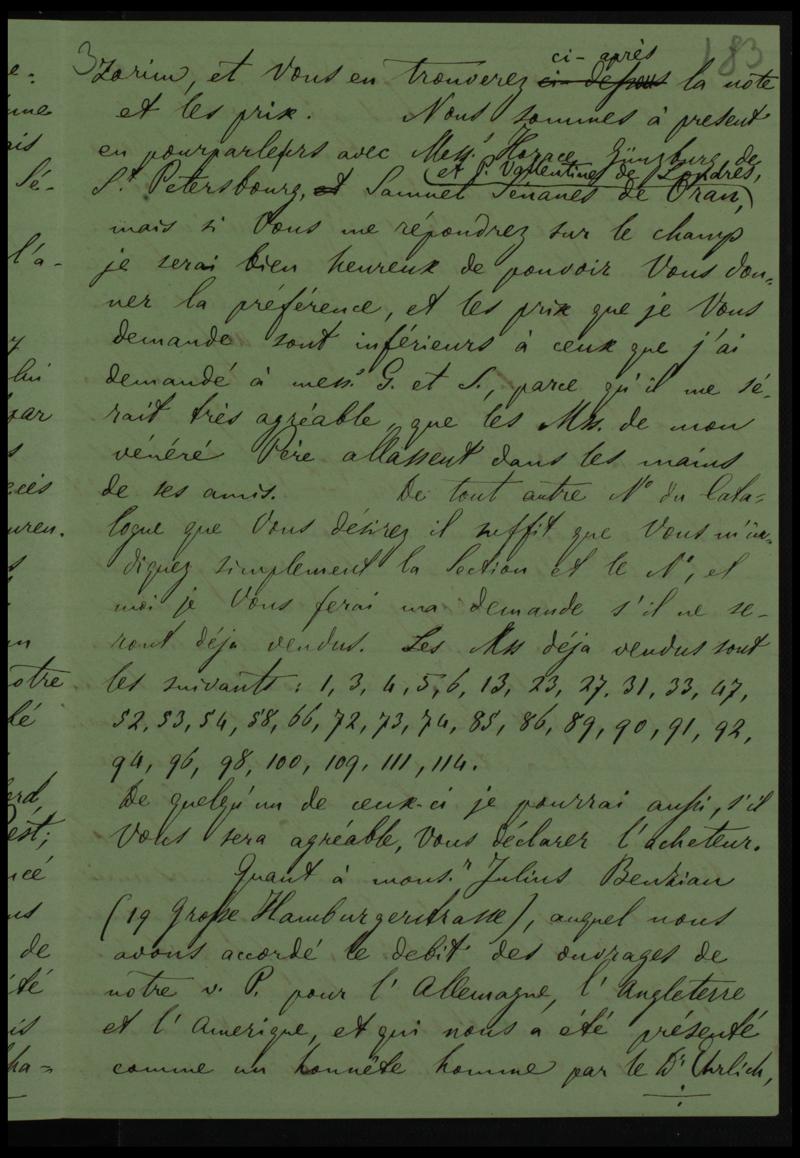 183
3
ci-après
Zorim, et Vous en trouverez ci-dessous la note
et les prix. Nous sommes à present
en pourparlers avec Mess.rs Horace Günzburg de
et P. Valentine de Londres,
S.t Petersbourg, et Samuel Sénanes de Oran,
mais si Vous me répondrez sur le champ
je serai bien heureux de pouvoir Vous don-
ner la préférence, et les prix que je Vous
demande sont inférieurs à ceux que j'ai
demandé à mess.rs G. et S., parce qu'il me sé-
rait très agréable, que les Mss. de mon
vénéré Père allassent dans les mains
de ses amis. De tout autre N.o du Cata-
logue que Vous désirez il suffit que Vous m'in-
diquez simplement la Section et le N.o, et
moi je Vous ferai ma demande s'il ne se-
ront déja vendus. Les Mss déja vendus sont
les suivants: 1, 3, 4, 5, 6, 13, 23, 27, 31, 33, 47,
52, 53, 54, 58, 66, 72, 73, 74, 85, 86, 89, 90, 91, 92,
94, 96, 98, 100, 109, 111, 114.
De quelqu'un de ceux-ci je pourrai aussi, s'il
Vous sera agréable, Vous déclarer l'acheteur.
Quant à mons.r Julius Benzian
(19 Grosse Hamburgerstrasse), auquel nous
avons accordé le debit des ouvrages de
notre v. P. pour l'Allemagne, l'Angleterre
et l'Amerique, et qui nous a été présenté
comme un honnête homme par le D.r Ehrlich,